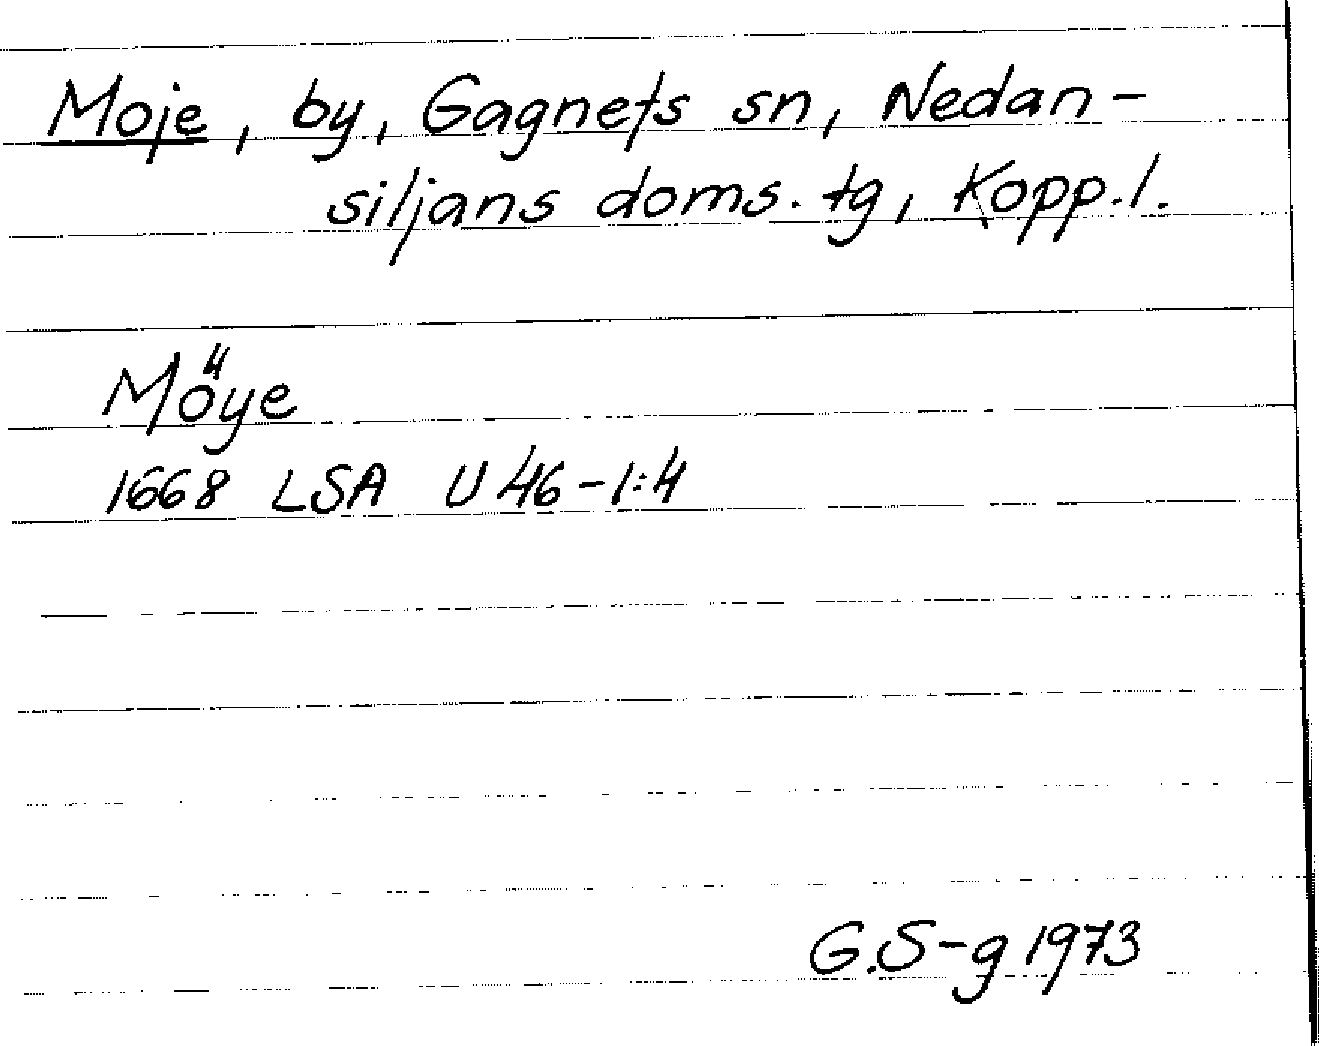 Moje, by, Gagnefs sn, Nedan-
siljans doms. tg, Kopp.l.
Möye
1668 LSA U 46-1:4
G.S-g 1973